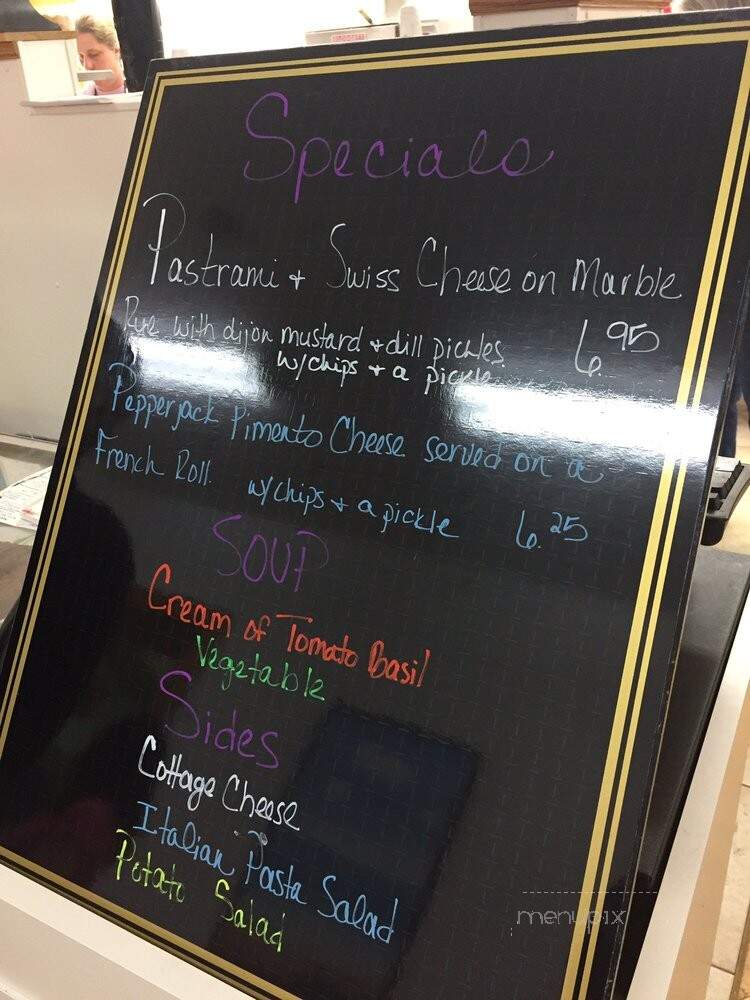 Specials
Pastrami + Swiss Cheese on Marble
Rye with dijon mustard + dill pickles 6.95
w/chips + a pickle
Pepperjack Pimento Cheese served on a
French Roll. w/chips + a pickle 6.25
SOUP
Cream of Tomato Basil
Vegetable
Sides
Cottage Cheese
Italian Pasta Salad
Potato Salad
menupix